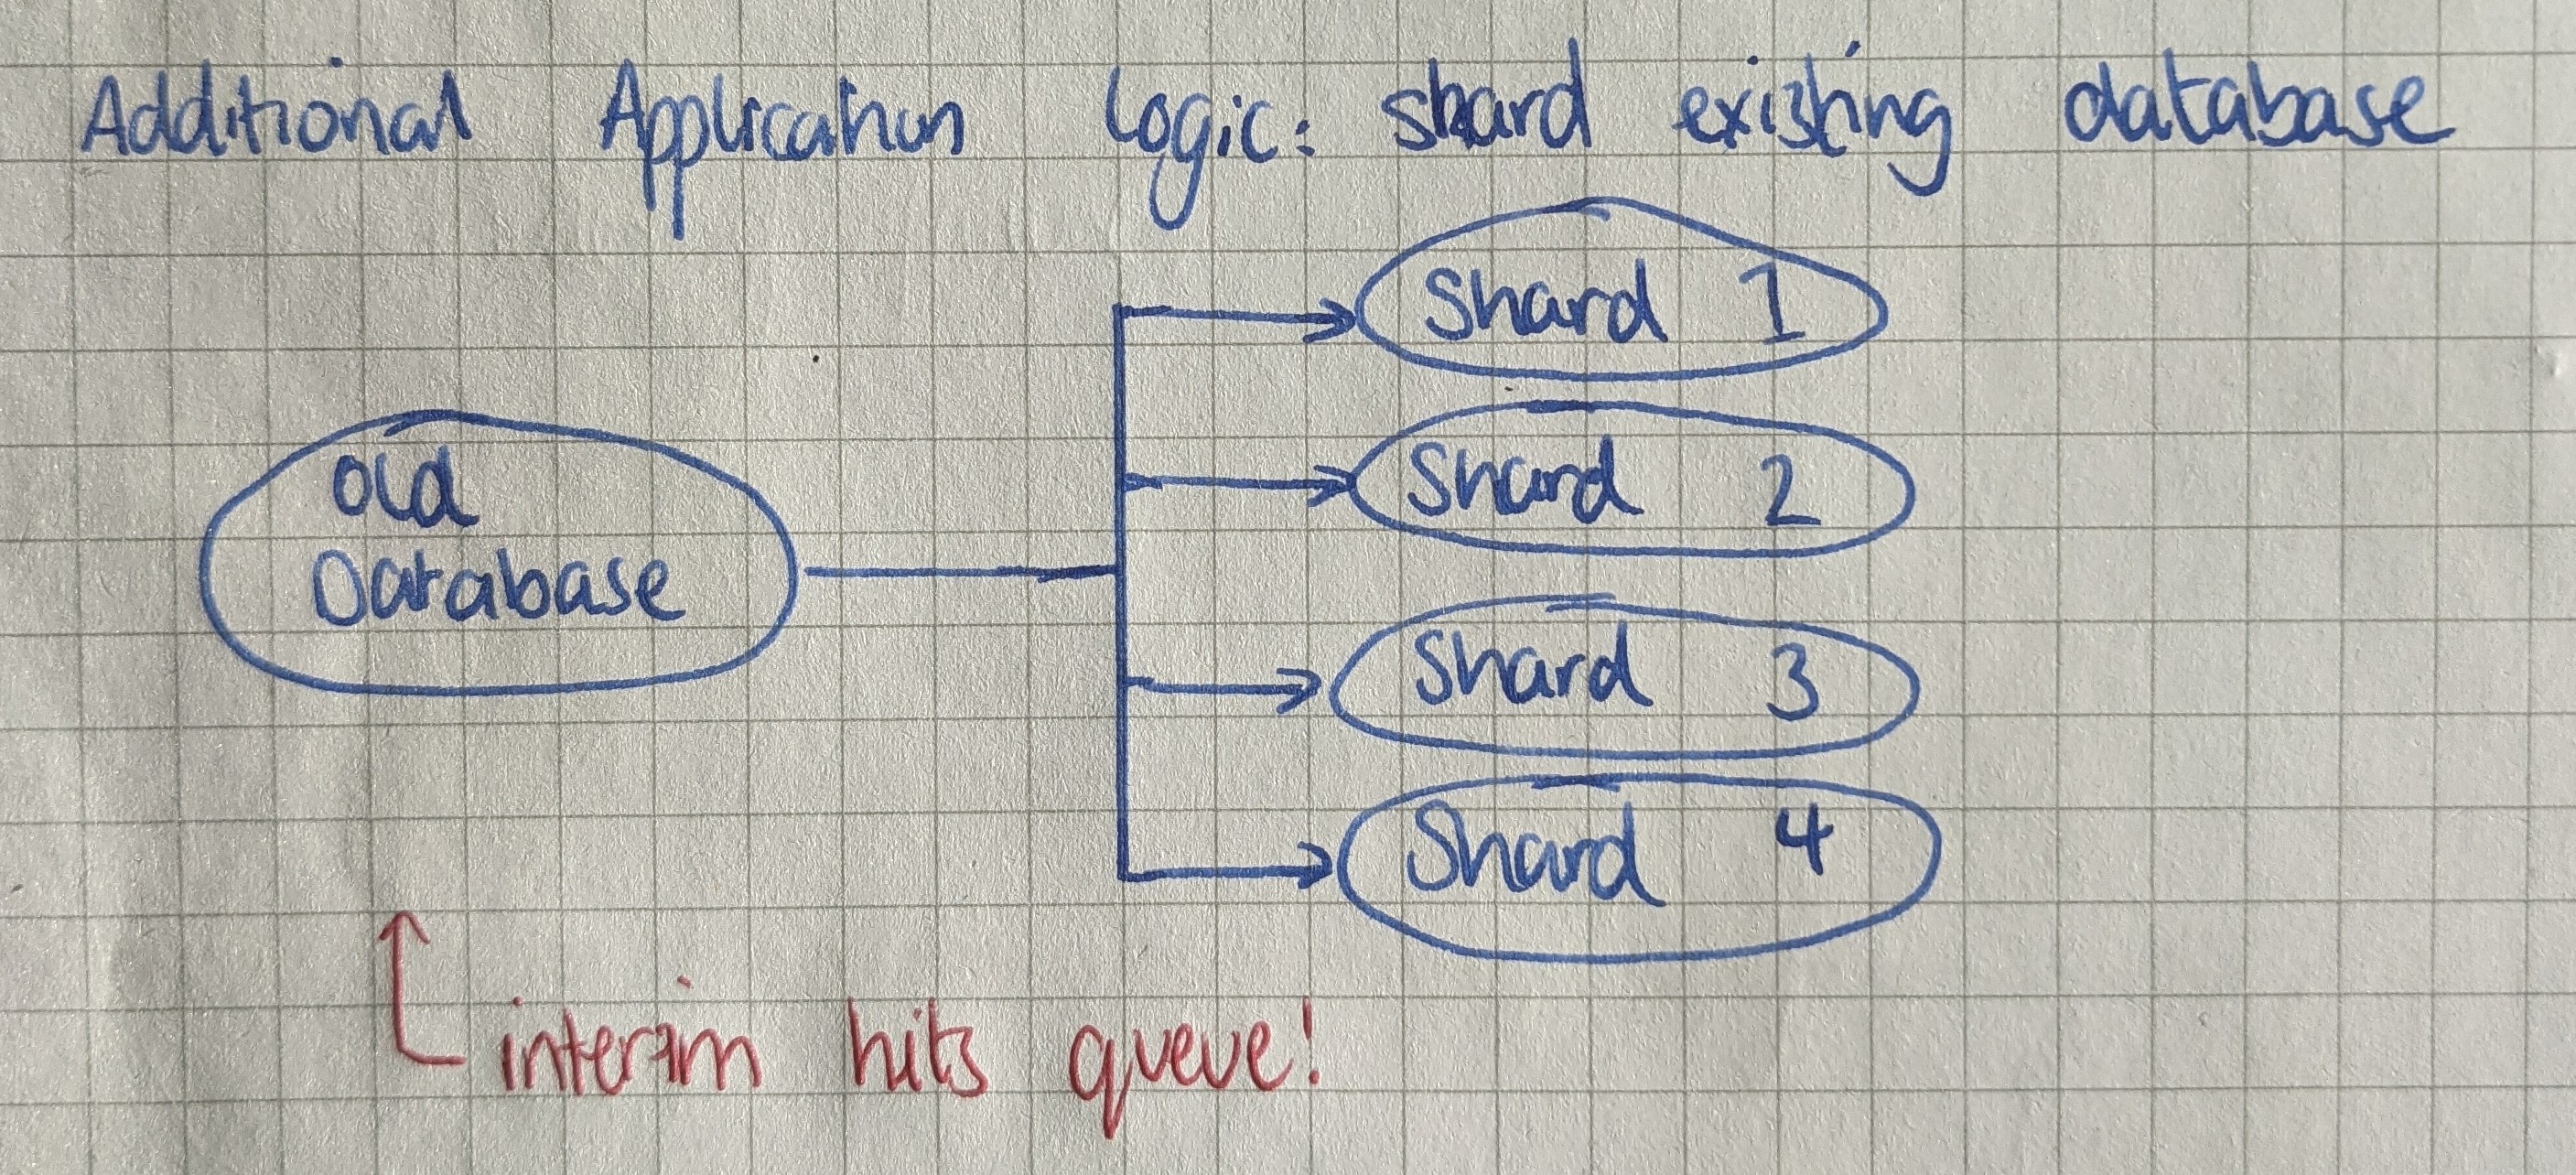 Additional Application Logic: shard existing database
Shard 1
Old
Database
Shard 2
Shard 3
Shard 4
interim hits queue!